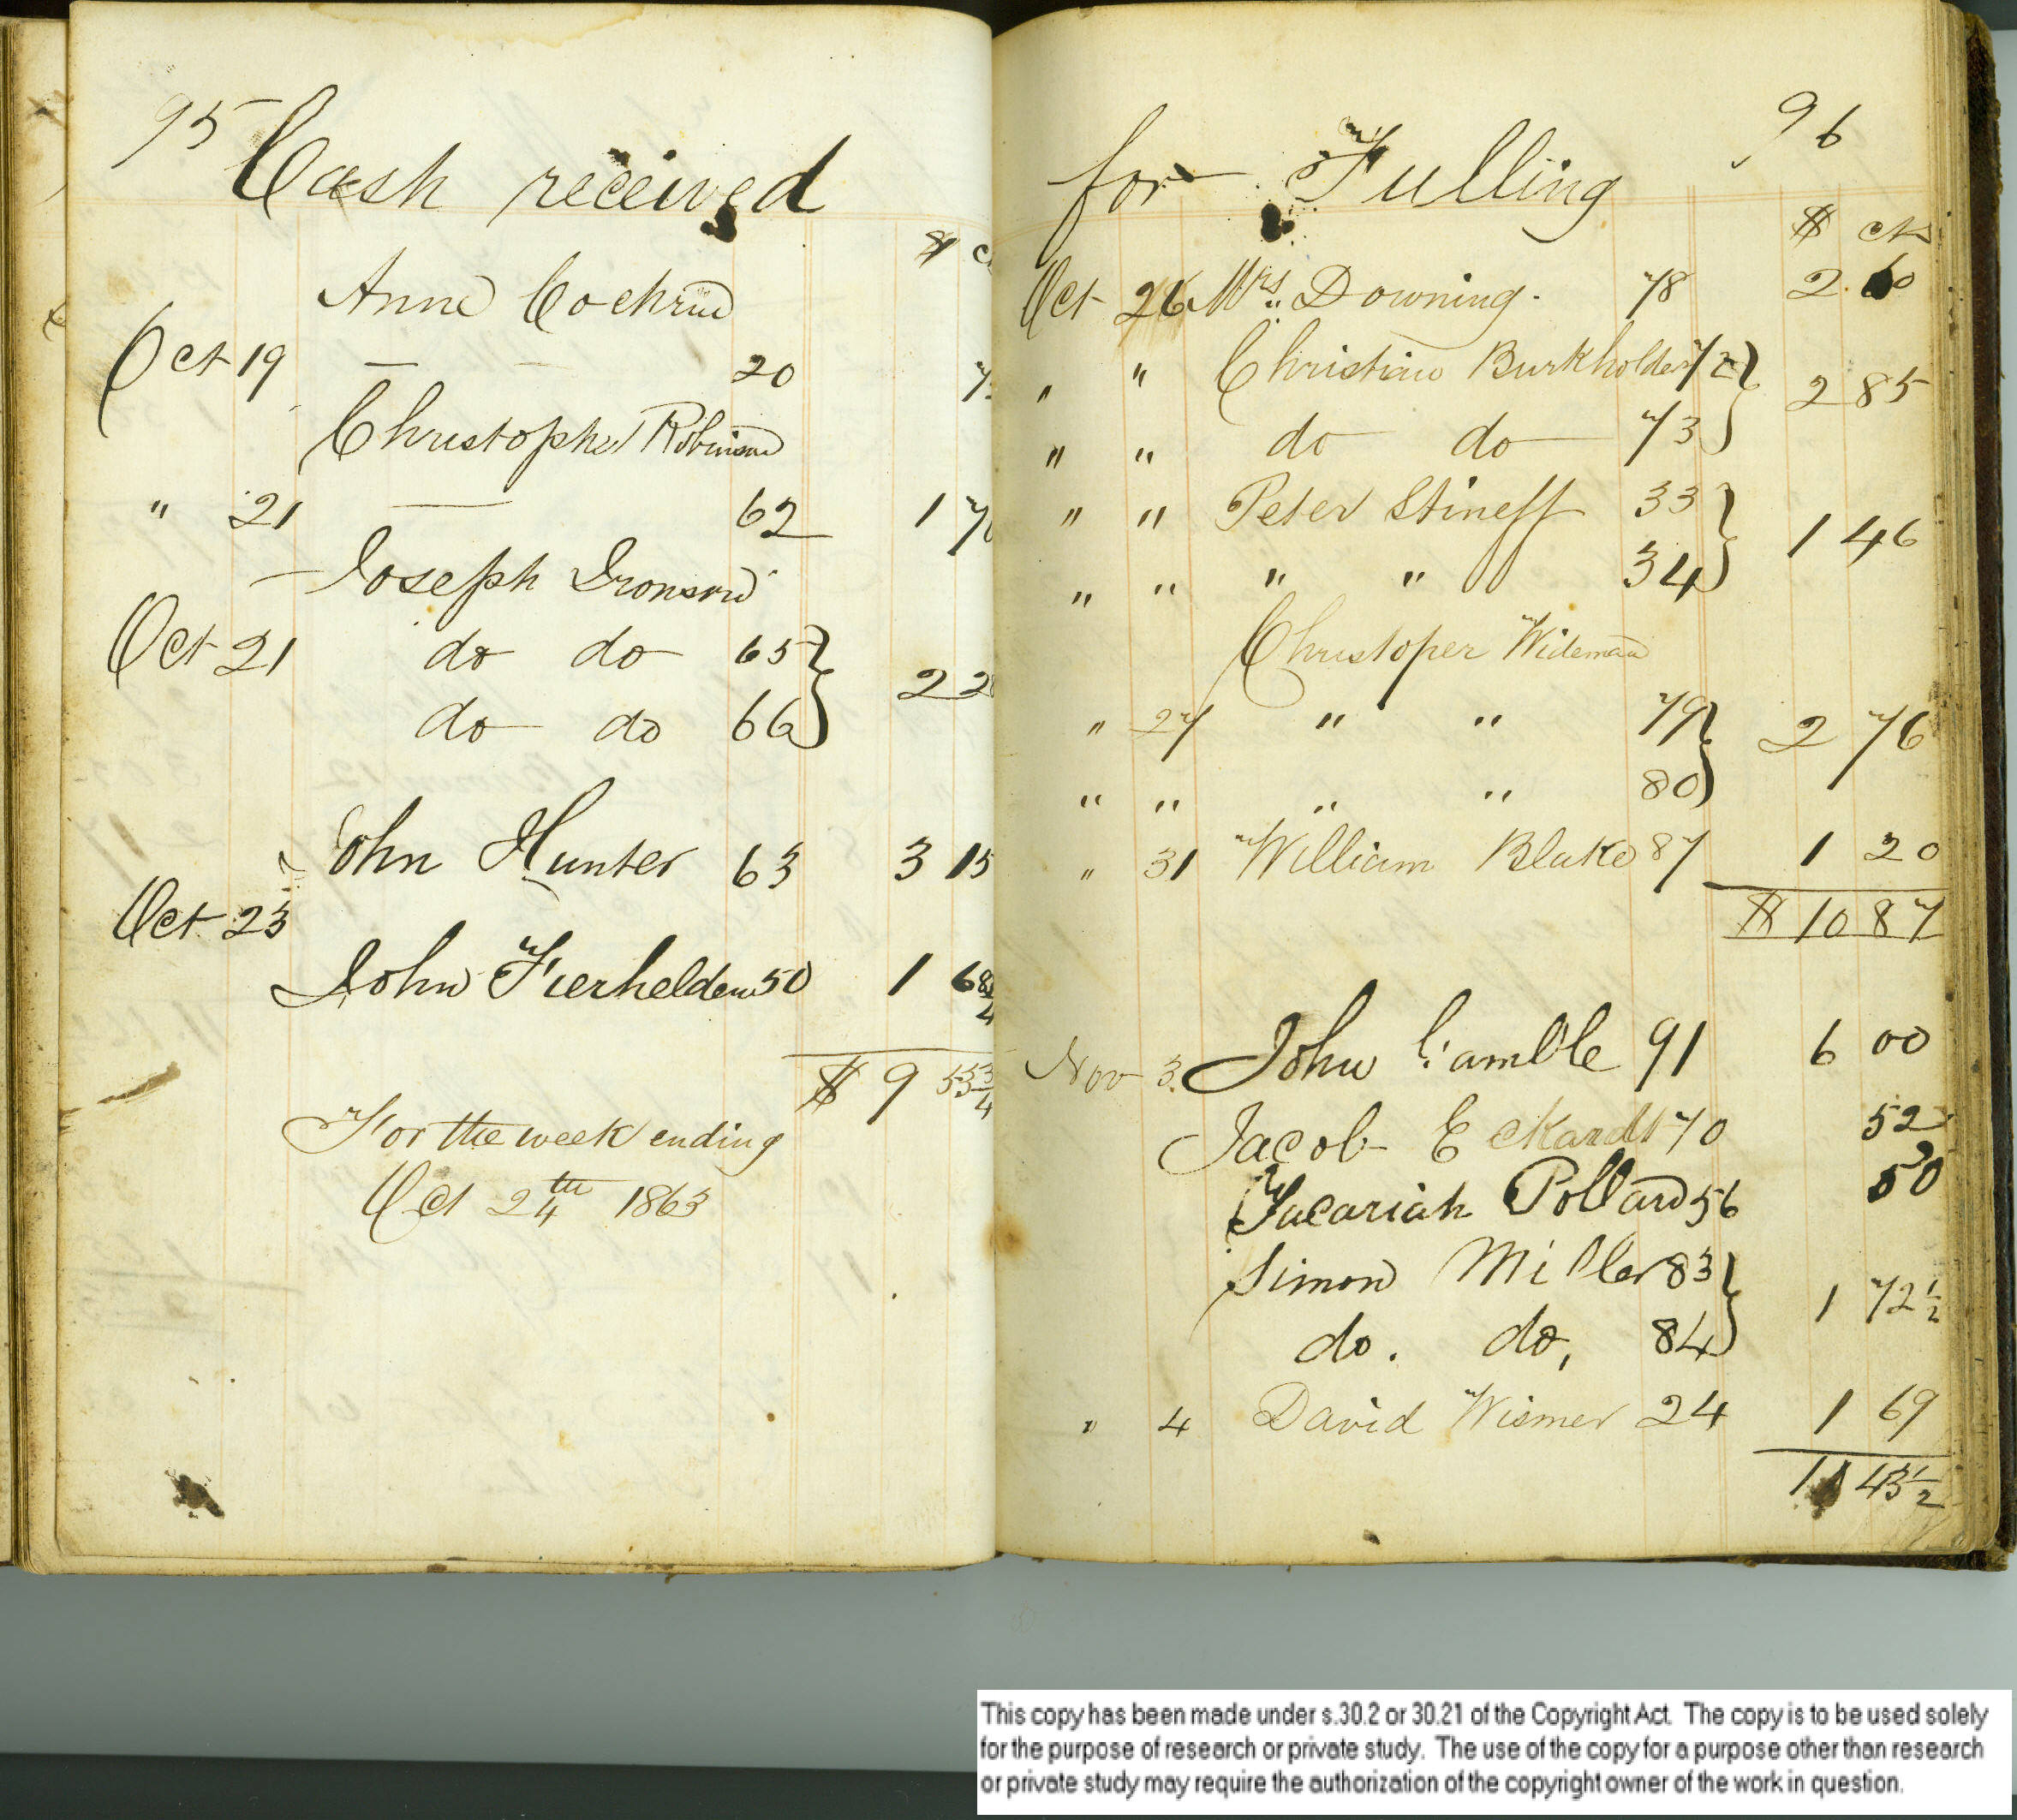 95
Cash received
$ c
Anne Cochran
Oct 19 — — 20 7
Christopher Robinson
" 21 — 62 1 7
Joseph Ironson
Oct 21 do do 65 } 2 2
do do 66
John Hunter 63 3 15
Oct 23
John Fierhelden 50 1 68 3/4
$ 9 53 3/4
For the week ending
Oct 24th 1863
96
for Fulling
$ cts
Oct 26 Mrs. Downing. 78 2 60
" " Christian Burkholder 72 } 2 85
" " do do 73
" " Peter Stineff 33 } 1 46
" " " " 34
Christoper Wideman
" 27 " " 79 } 2 76
" " " " 80
" 31 William Blake 87 1 20
$ 10 87
Nov 3. John Gamble 91 6 00
Jacob Eckardt 70 52
Zacariah Pollard 56 50
Simon Miller 83 } 1 72 1/2
do. do, 84
" 4 David Wismer 24 1 69
11 43 1/2
This copy has been made under s.30.2 or 30.21 of the Copyright Act. The copy is to be used solely
for the purpose of research or private study. The use of the copy for a purpose other than research
or private study may require the authorization of the copyright owner of the work in question.